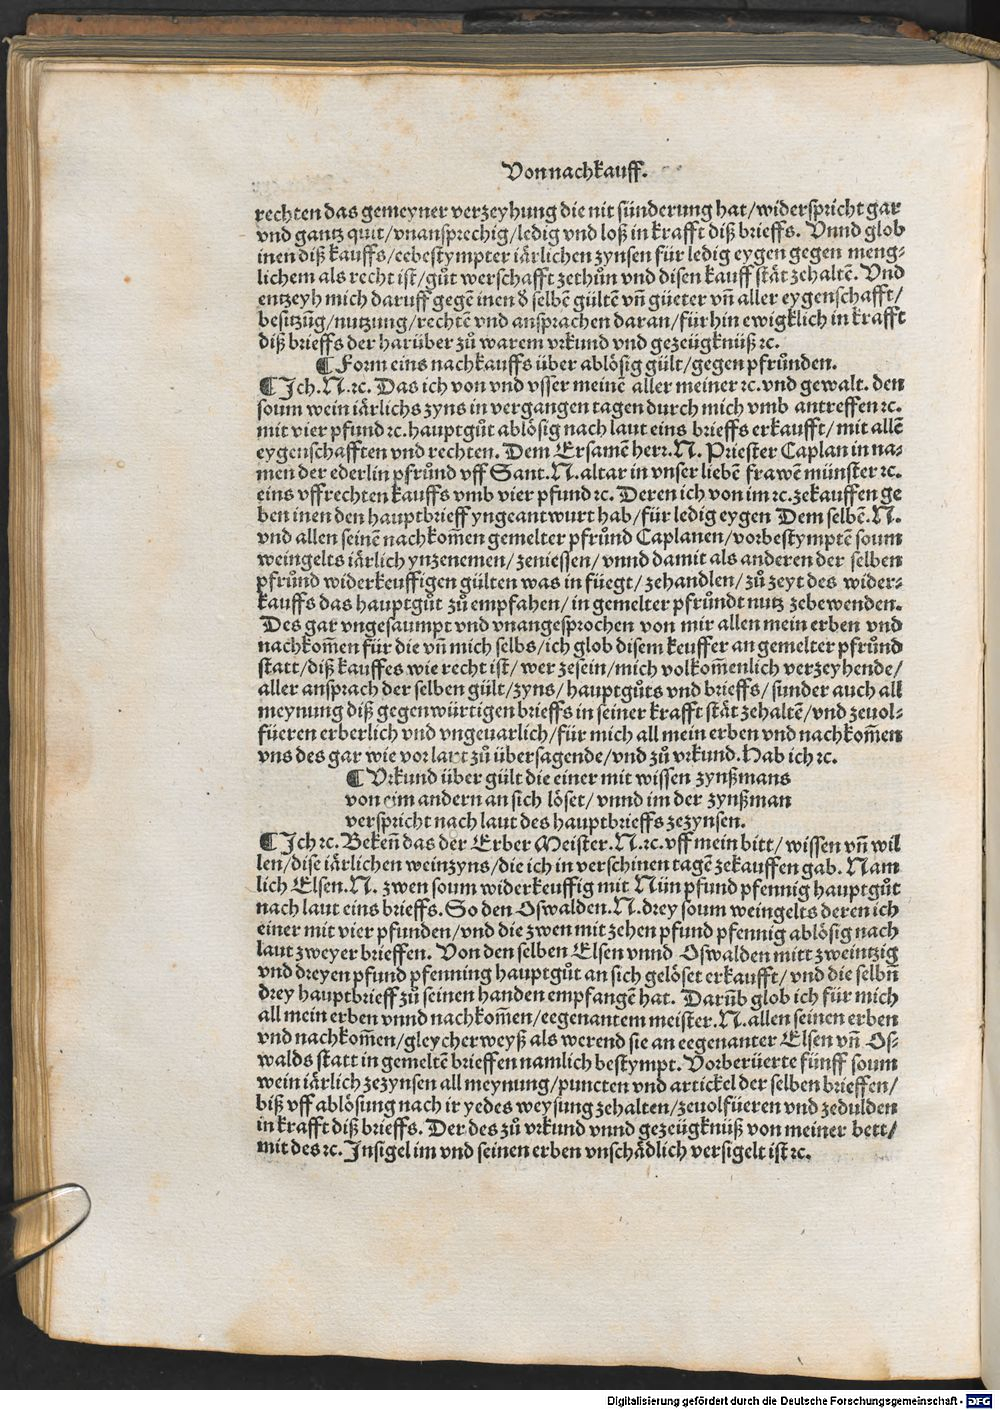 Von nachkauff.
rechten das gemeyner verzeyhung die nit sünderung hat/widerspricht gar
vnd gantz quit/vnansprechig/ledig vnd loß in krafft diß brieffs. Vnnd glob
inen diß kauffs/eebestympter iärlichen zynsen für ledig eygen gegen meng-
lichem als recht ist/gůt werschafft zethůn vnd disen kauff stät zehaltē. Vnd
entzeyh mich daruff gegē inen ð selbē gültē vn̄ güeter vn̄ aller eygenschafft/
besitzūg/nutzung/rechtē vnd ansprachen daran/für hin ewigklich in krafft
diß brieffs der harüber zů warem vrkund vnd gezeügknüß ⁊c.
¶ Form eins nachkauffs über ablösig gült/gegen pfrůnden.
¶ Ich. N. ⁊c. Das ich von vnd vsser meinē aller meiner ⁊c. vnd gewalt. den
soum wein iärlichs zyns in vergangen tagen durch mich vmb antreffen ⁊c.
mit vier pfund ⁊c. hauptgůt ablösig nach laut eins brieffs erkaufft/mit allē
eygenschafften vnd rechten. Dem Ersamē herr. N. Priester Caplan in na-
men der ederlin pfrůnd vff Sant. N. altar in vnser liebē frawē münster ⁊c.
eins vffrechten kauffs vmb vier pfund ⁊c. Deren ich von im ⁊c. zekauffen ge
ben inen den hauptbrieff yngeantwurt hab/für ledig eygen Dem selbē. N.
vnd allen seinē nachkom̄en gemelter pfrůnd Caplanen/vorbestymptē soum
weingelts iärlich ynzenemen/zeniessen/vnnd damit als anderen der selben
pfrůnd widerkeuffigen gülten was in füegt/zehandlen/zů zeyt des wider-
kauffs das hauptgůt zů empfahen/in gemelter pfrůndt nutz zebewenden.
Des gar vngesaumpt vnd vnangesprochen von mir allen mein erben vnd
nachkom̄en für die vn̄ mich selbs/ich glob disem keuffer an gemelter pfrůnd
statt/diß kauffes wie recht ist/wer zesein/mich volkom̄enlich verzeyhende/
aller ansprach der selben gült/zyns/hauptgůts vnd brieffs/sunder auch all
meynung diß gegenwürtigen brieffs in seiner krafft stät zehaltē/vnd zeuol-
füeren erberlich vnd vngeuarlich/für mich all mein erben vnd nachkom̄en
vns des gar wie vor laut zů übersagende/vnd zů vrkund. Hab ich ⁊c.
¶ Vrkund über gült die einer mit wissen zynßmans
von eim andern an sich löset/vnnd im der zynßman
verspricht nach laut des hauptbrieffs zezynsen.
¶ Ich ⁊c. Beken̄ das der Erber Meister. N. ⁊c. vff mein bitt/wissen vn̄ wil
len/dise iärlichen weinzyns/die ich in verschinen tagē zekauffen gab. Nam
lich Elsen. N. zwen soum widerkeuffig mit Nün pfund pfennig hauptgůt
nach laut eins brieffs. So den Oswalden. N. drey soum weingelts deren ich
einer mit vier pfunden/vnd die zwen mit zehen pfund pfennig ablösig nach
laut zweyer brieffen. Von den selben Elsen vnnd Oswalden mitt zweintzig
vnd dreyen pfund pfenning hauptgůt an sich gelöset erkaufft/vnd die selbn̄
drey hauptbrieff zů seinen handen empfangē hat. Darūb glob ich für mich
all mein erben vnnd nachkom̄en/eegenantem meister. N. allen seinen erben
vnd nachkom̄en/gleycherweyß als werend sie an eegenanter Elsen vn̄ Os-
walds statt in gemeltē brieffen namlich bestympt. Vorberüerte fünff soum
wein iärlich zezynsen all meynung/puncten vnd artickel der selben brieffen/
biß vff ablösung nach ir yedes weysung zehalten/zeuolfüeren vnd zedulden
in krafft diß brieffs. Der des zů vrkund vnnd gezeügknüß von meiner bett/
mit des ⁊c. Insigel im vnd seinen erben vnschädlich versigelt ist ⁊c.
Digitalisierung gefördert durch die Deutsche Forschungsgemeinschaft - DFG